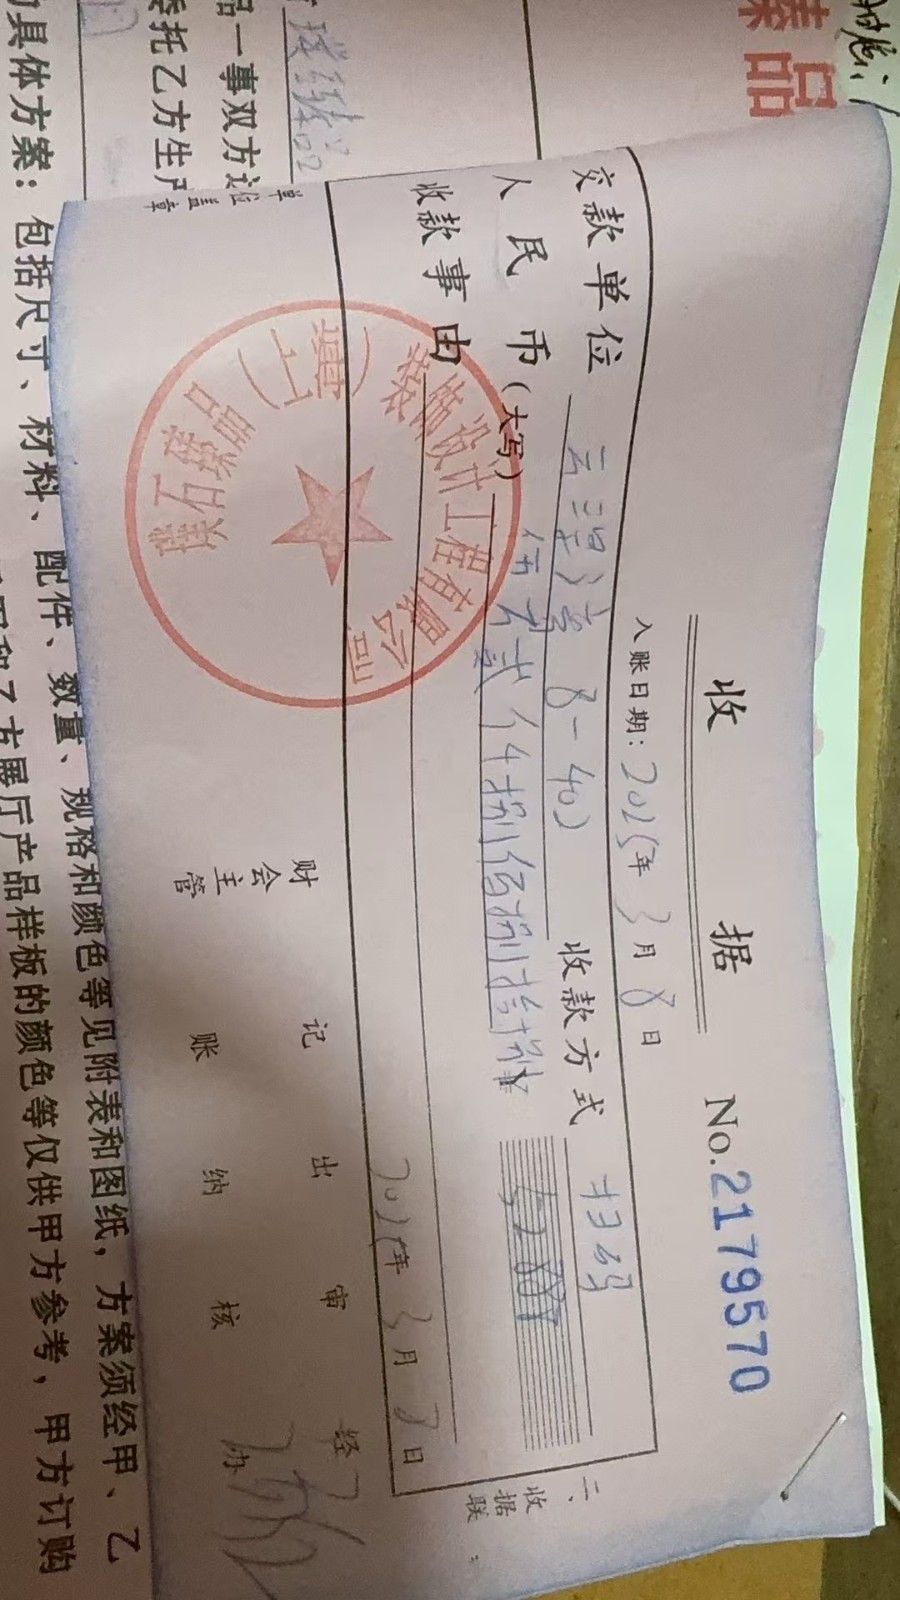 收 据
No.2179570
入账日期: 2025年 3月 8日
交款单位 8-402 收款方式 扫码
人民币(大写) 伍万贰仟捌佰捌拾捌
收款事由
2025年 3月 8日
二、收据联
单位盖章
财会主管
记账
出纳
审核
经办
璞匠臻品
装饰设计工程有限公司
臻品
品一事双方
委托乙方生产
具体方案：包括尺寸、材料、配件、数量、规格和颜色等见附表和图纸，方案须经甲、乙
乙方展厅产品样板的颜色等仅供甲方参考，甲方订购